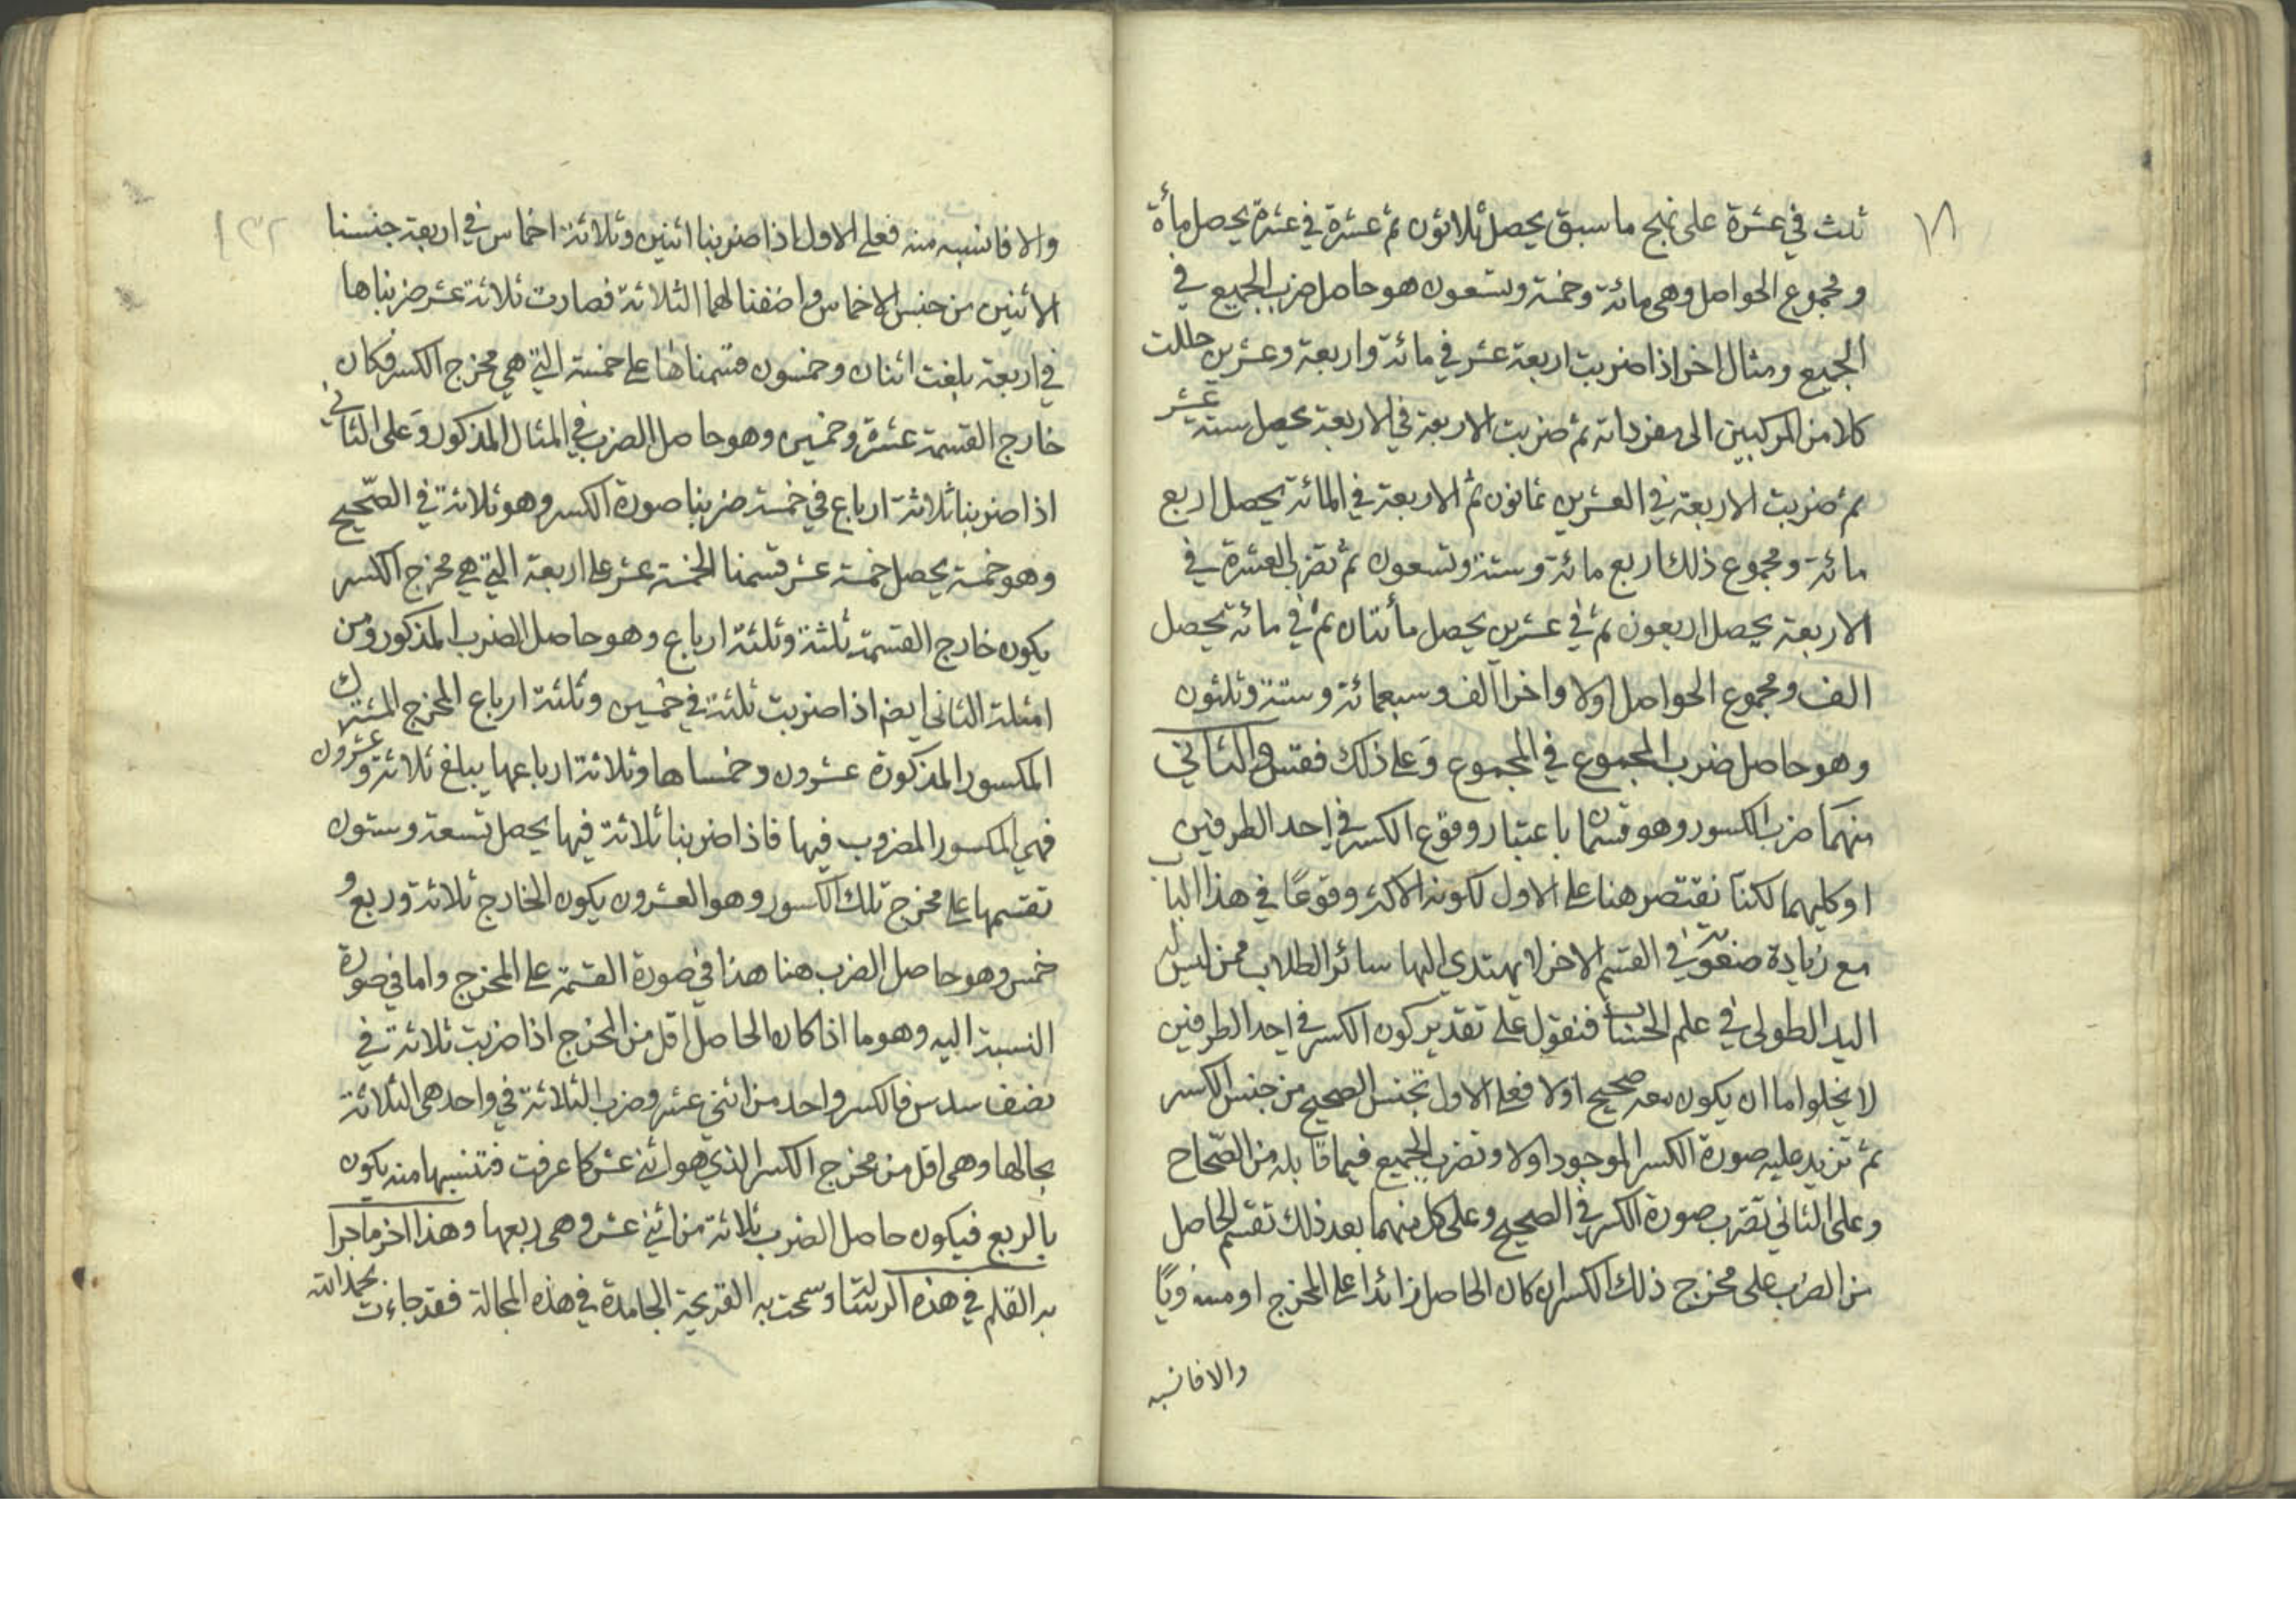 ١٨
ثلث في عشرة على نهج ما سبق يحصل ثلاثون ثم عشرة في عشرة يحصل مأة
ومجموع الحواصل وهي مائة وخمسة وتسعون هو حاصل ضرب الجميع في
الجميع ومثال اخر اذا ضربت اربعة عشر في مائة واربعة وعشرين حللت
كلا من المركبين الى مفرداته ثم ضربت الاربعة في الاربعة يحصل ستة عشر
ثم ضربت الاربعة في العشرين ثمانون ثم الاربعة في المائة يحصل اربع
مائة ومجموع ذلك اربع مائة وستة وتسعون ثم تضرب العشرة في
الاربعة يحصل اربعون ثم في عشرين يحصل مأتتان ثم في مائة يحصل
الف ومجموع الحواصل اولا واخرا الف وسبعمائة وستة وثلثون
وهو حاصل ضرب المجموع في المجموع وعلى ذلك فقس والثاني
منهما ضرب الكسور وهو قسمان باعتبار وقوع الكسر في احد الطرفين
او كليهما لكنا نقتصر هنا على الاول لكونه الاكثر وقوعا في هذا الباب
مع زيادة صعوبة في القسم الاخر لا يهتدي اليها سائر الطلاب ممن ليس له
اليد الطولى في علم الحساب فنقول على تقدير كون الكسر في احد الطرفين
لا يخلوا اما ان يكون معه صحيح اولا فعلى الاول تجنس الصحيح من جنس الكسر
ثم تزيد عليه صورة الكسر الموجود اولا وتضرب الجميع فيما قابله من الصحاح
وعلى الثاني تضرب صورة الكسر في الصحيح وعلى كل منهما بعد ذلك تقسم الحاصل
من الضرب على مخرج ذلك الكسر ان كان الحاصل زائدا على المخرج او مساويا
والا فانسبه
والا فانسبه منه فعلى الاول اذا ضربنا اثنين وثلاثة اخماس في اربعة جنسنا
الاثنين من جنس الاخماس واضفنا لهما الثلاثة فصارت ثلاثة عشر ضربناها
في اربعة بلغت اثنان وخمسون قسمناها على خمسة التي هي مخرج الكسر فكان
خارج القسمة عشرة وخمسين وهو حاصل الضرب في المثال المذكور وعلى الثاني
اذا ضربنا ثلاثة ارباع في خمسة ضربنا صورة الكسر وهو ثلاثة في الصحيح
وهو خمسة يحصل خمسة عشر قسمنا الخمسة عشر على اربعة التي هي مخرج الكسر
يكون خارج القسمة ثلثة وثلثة ارباع وهو حاصل الضرب المذكور ومن
امثلة الثاني ايضم اذا ضربت ثلثة في خمسين وثلثة ارباع المخرج المشترك
المكسور المذكورة عشرون وخمساها وثلاثة ارباعها يبلغ ثلاثة وعشرون
فهي المكسور المضروب فيها فاذا ضربنا ثلاثة فيها يحصل تسعة وستون
تقسمها على مخرج تلك الكسور وهو العشرون يكون الخارج ثلاثة وربع و
خمس وهو حاصل الضرب هنا هذا في صورة القسمة على المخرج واما في صورة
النسبة اليه وهو ما اذا كان الحاصل اقل من المخرج اذا ضربت ثلاثة في
نصف سدس فالكسر واحد من اثني عشر وضرب الثلاثة في واحد هي الثلاثة
بحالها وهي اقل من مخرج الكسر الذي هو اثني عشر كما عرفت فتنسبها منه يكون
بالربع فيكون حاصل الضرب ثلاثة من اثني عشر وهي ربعها وهذا اخر ما جرا
به القلم في هذه الرسالة وسمحت به القريحة الجامدة في هذه المجالة فقد جاءت بحمد الله